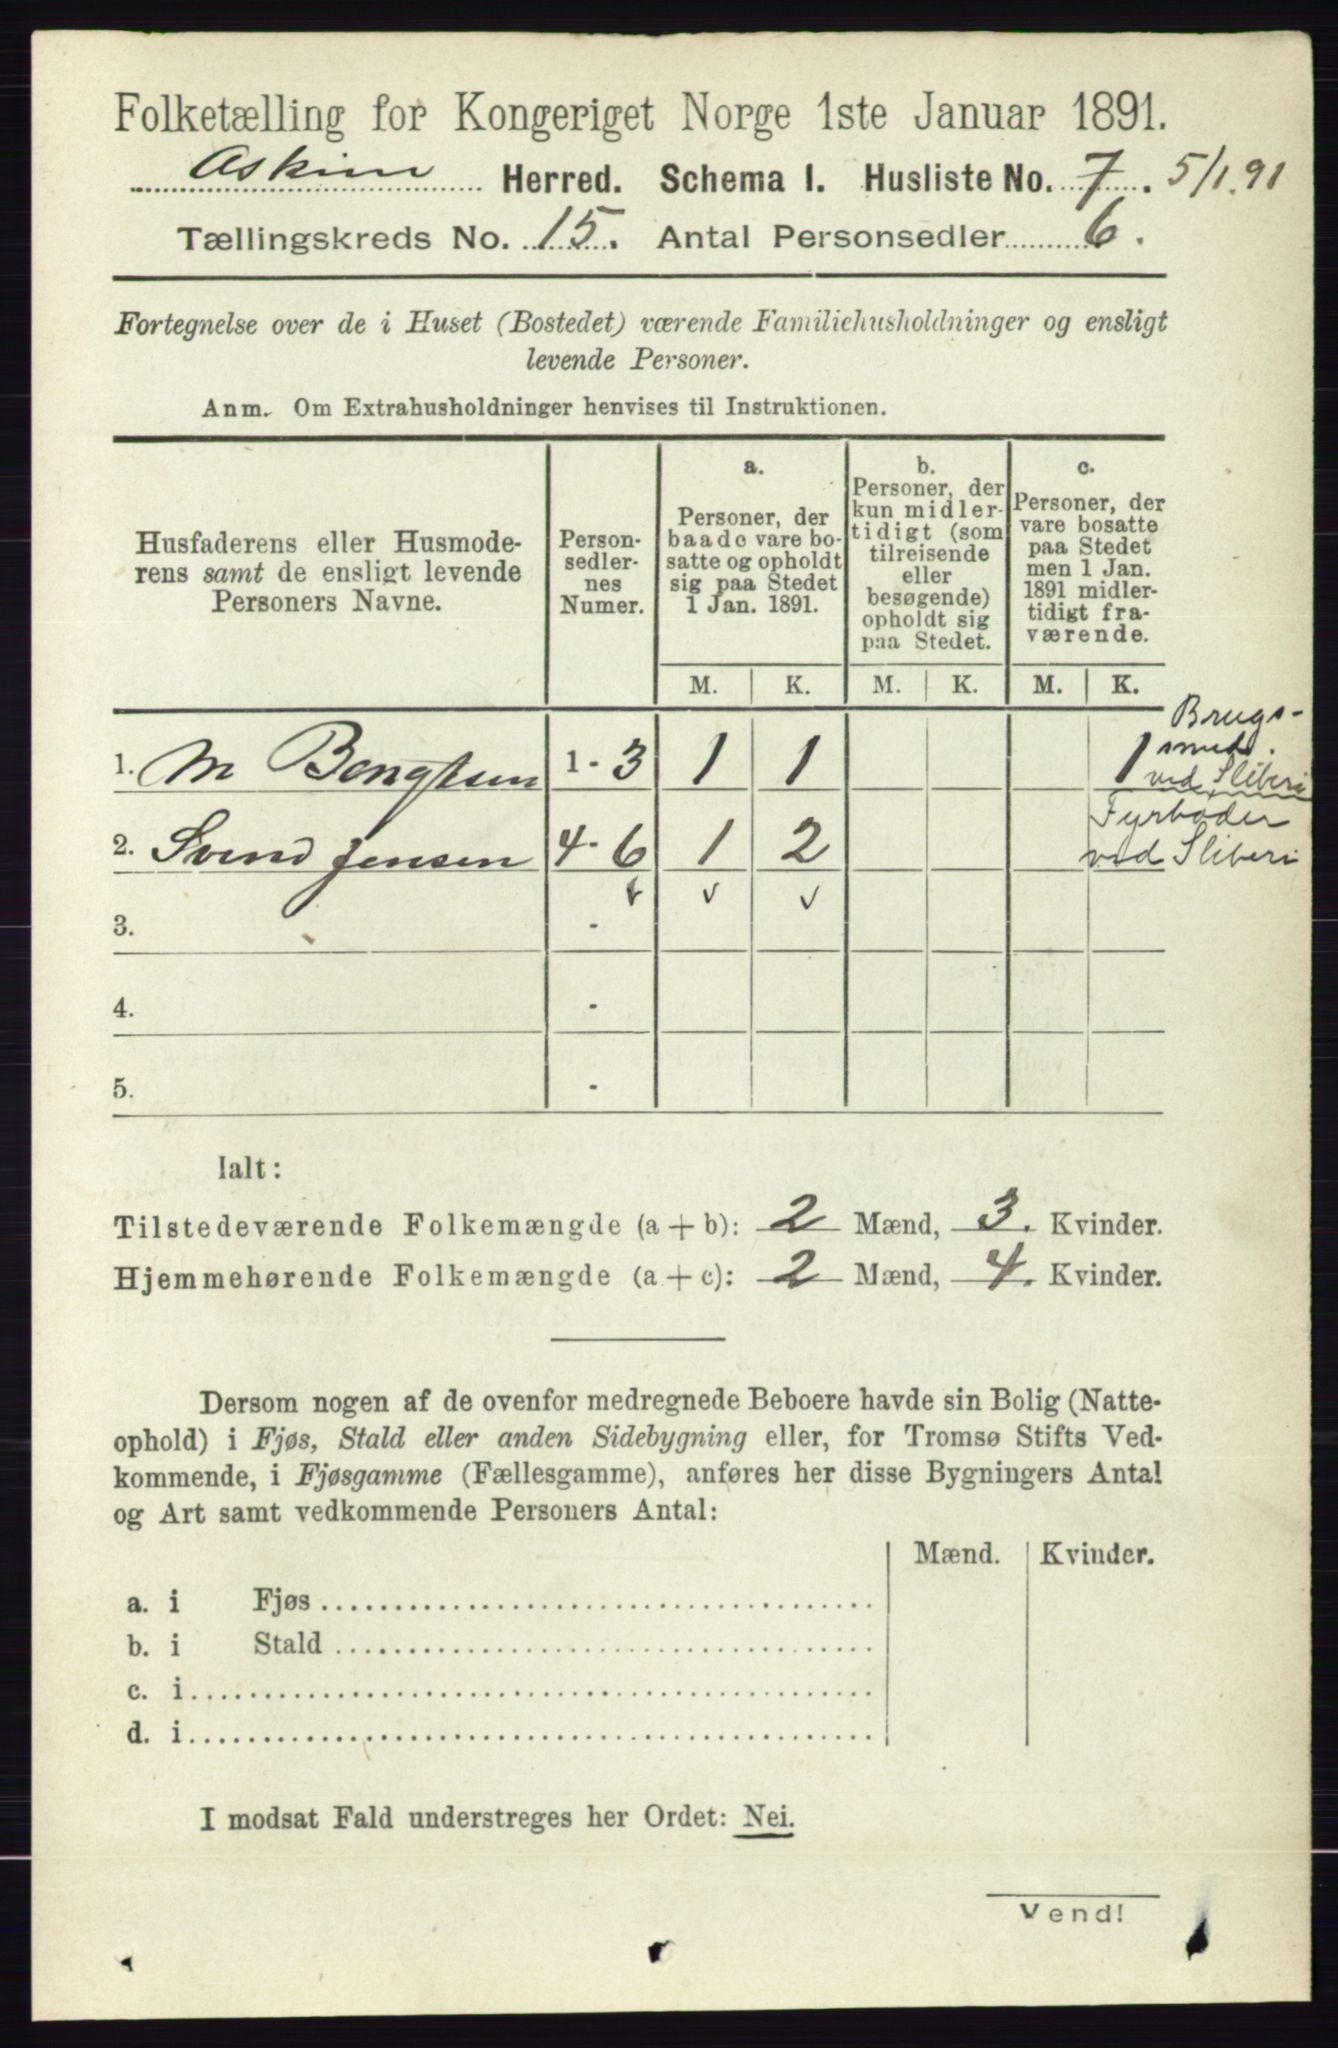 Folketælling for Kongeriget Norge 1ste Januar 1891.
Askim Herred. Schema I. Husliste No. 7. 5/1.91
Tællingskreds No. 15. Antal Personsedler 6.
Fortegnelse over de i Huset (Bostedet) værende Familiehusholdninger og ensligt
levende Personer.
Anm. Om Extrahusholdninger henvises til Instruktionen.
Husfaderens eller Husmode-
rens samt de ensligt levende
Personers Navne.
Person-
sedler-
nes
Numer.
a.
Personer, der
baade vare bo-
satte og opholdt
sig paa Stedet
1 Jan. 1891.
b.
Personer, der
kun midler-
tidigt (som
tilreisende
eller
besøgende)
opholdt sig
paa Stedet.
c.
Personer, der
vare bosatte
paa Stedet
men 1 Jan.
1891 midler-
tidigt fra-
værende.
M. K. M. K. M. K.
1. M Bengtsen 1-3 1 1 1
Brugs-
smed.
ved Sliberi
2. Svend Jensen 4-6 1 2
Fyrbøder
ved Sliberi
3. -
4. -
5. -
Ialt:
Tilstedeværende Folkemængde (a + b): 2 Mænd, 3. Kvinder.
Hjemmehørende Folkemængde (a + c): 2 Mænd, 4. Kvinder.
Dersom nogen af de ovenfor medregnede Beboere havde sin Bolig (Natte-
ophold) i Fjøs, Stald eller anden Sidebygning eller, for Tromsø Stifts Ved-
kommende, i Fjøsgamme (Fællesgamme), anføres her disse Bygningers Antal
og Art samt vedkommende Personers Antal:
Mænd. Kvinder.
a. i Fjøs
b. i Stald
c. i
d. i
I modsat Fald understreges her Ordet: Nei.
Vend!